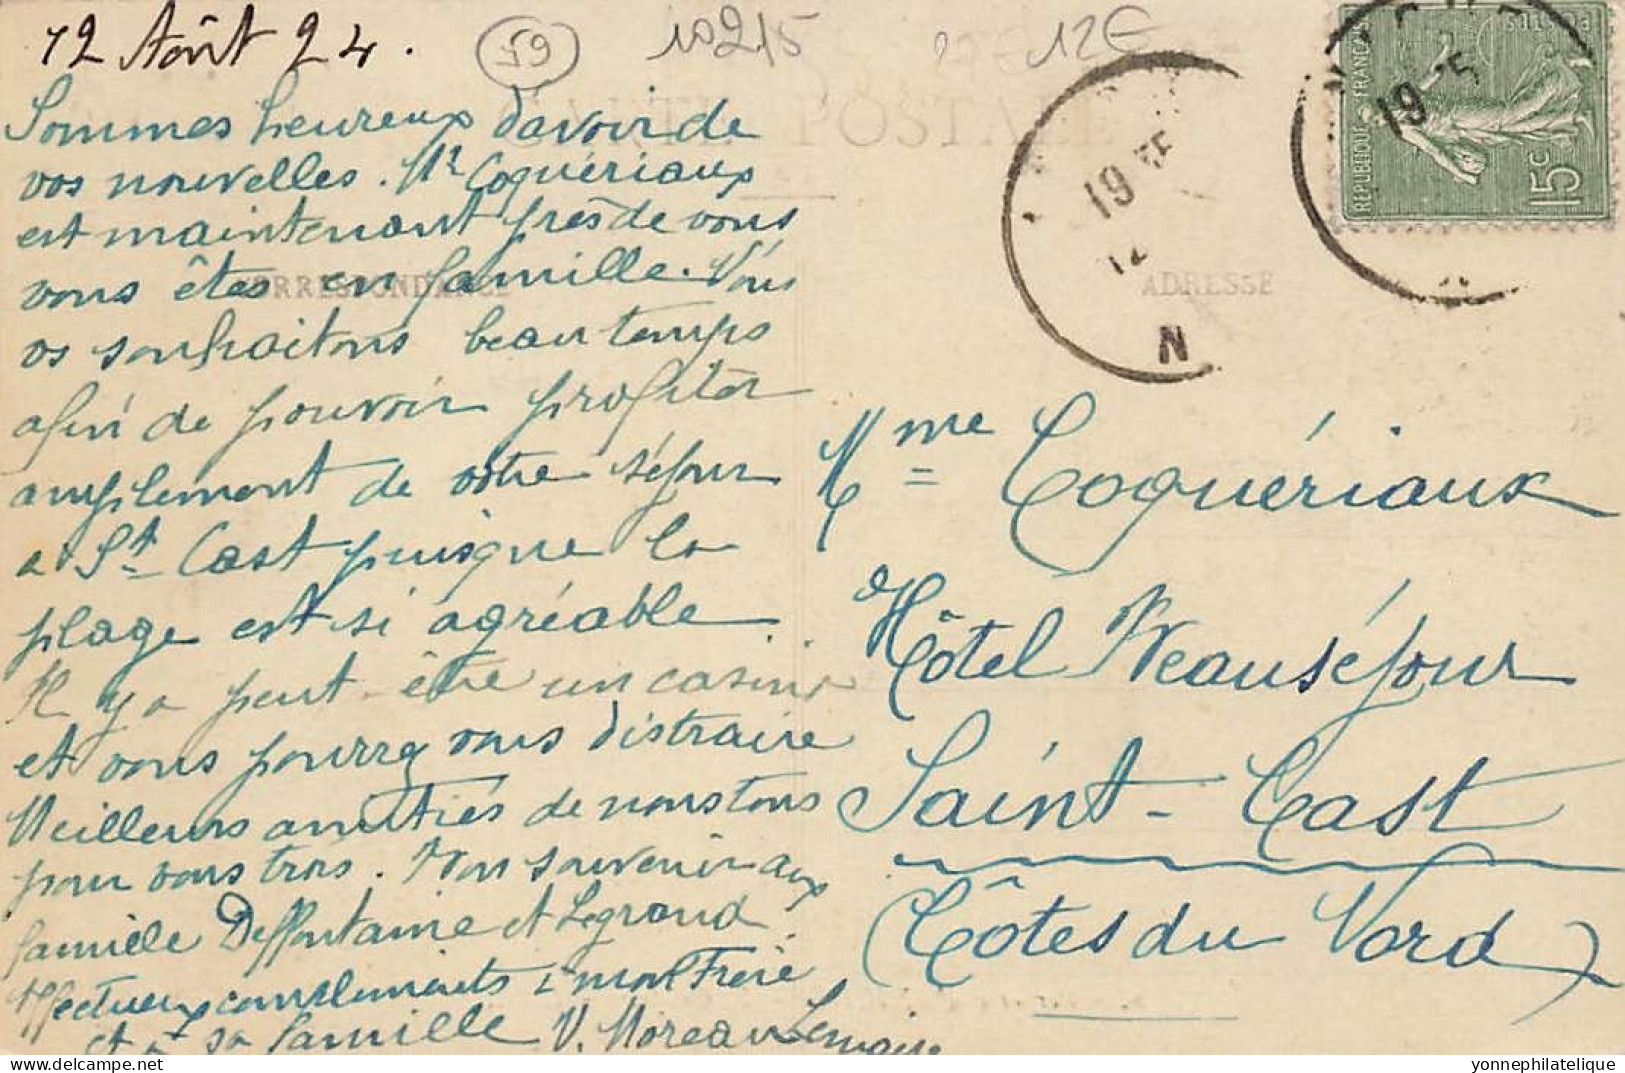 12 Août 24.
59
10215
12€
CARTE POSTALE
CORRESPONDANCE
ADRESSE
Sommes heureux d'avoir de
vos nouvelles. Mr Coquériaux
est maintenant près de vous
vous êtes en famille. Vous
os souhaitons beau temps
afin de pouvoir profiter
amplement de votre séjour
a St Cast puisque la
plage est si agréable
Il y a peut-être un casino
et vous pourrez vous distraire
Meilleurs amitiés de nous tous
pour vous trois. Mon souvenir aux
famille Deffontaine et Legrand
Affectueux compliments à mon Frère
et à sa famille V. Moreau Lemaire
REPUBLIQUE FRANÇAISE
POSTES
15c
19 35
12
N
19 5
Mme Coquériaux
Hôtel Beauséjour
Saint-Cast
Côtes du Nord
yonnephilatelique